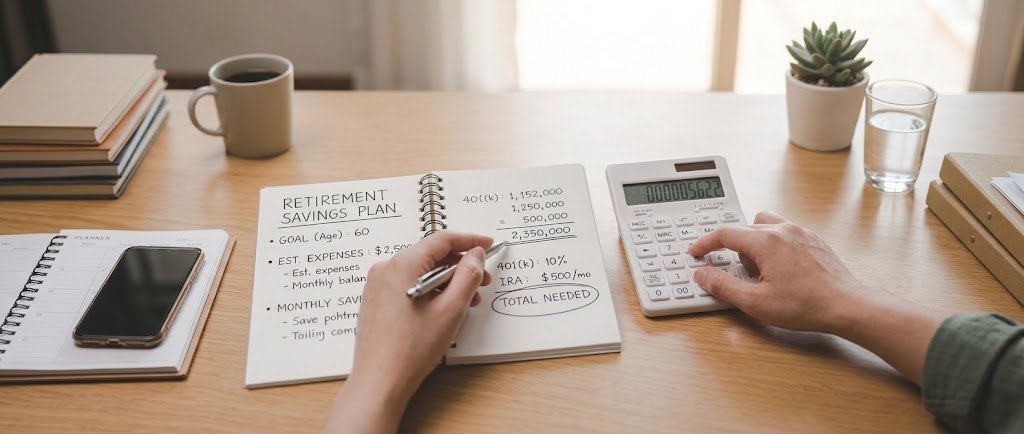 PLANNER
RETIREMENT
SAVINGS PLAN
• GOAL (Age) : 60
• EST. EXPENSES : $2,50
- Est. expenses
- Monthly balan
• MONTHLY SAVE
- Save pohtrn
- Toiling comp
40((k) : 1,152,000
1,250,000
= 500,000
2,350,000
401(k) : 10%
IRA : $500/mo
TOTAL NEEDED
000005622